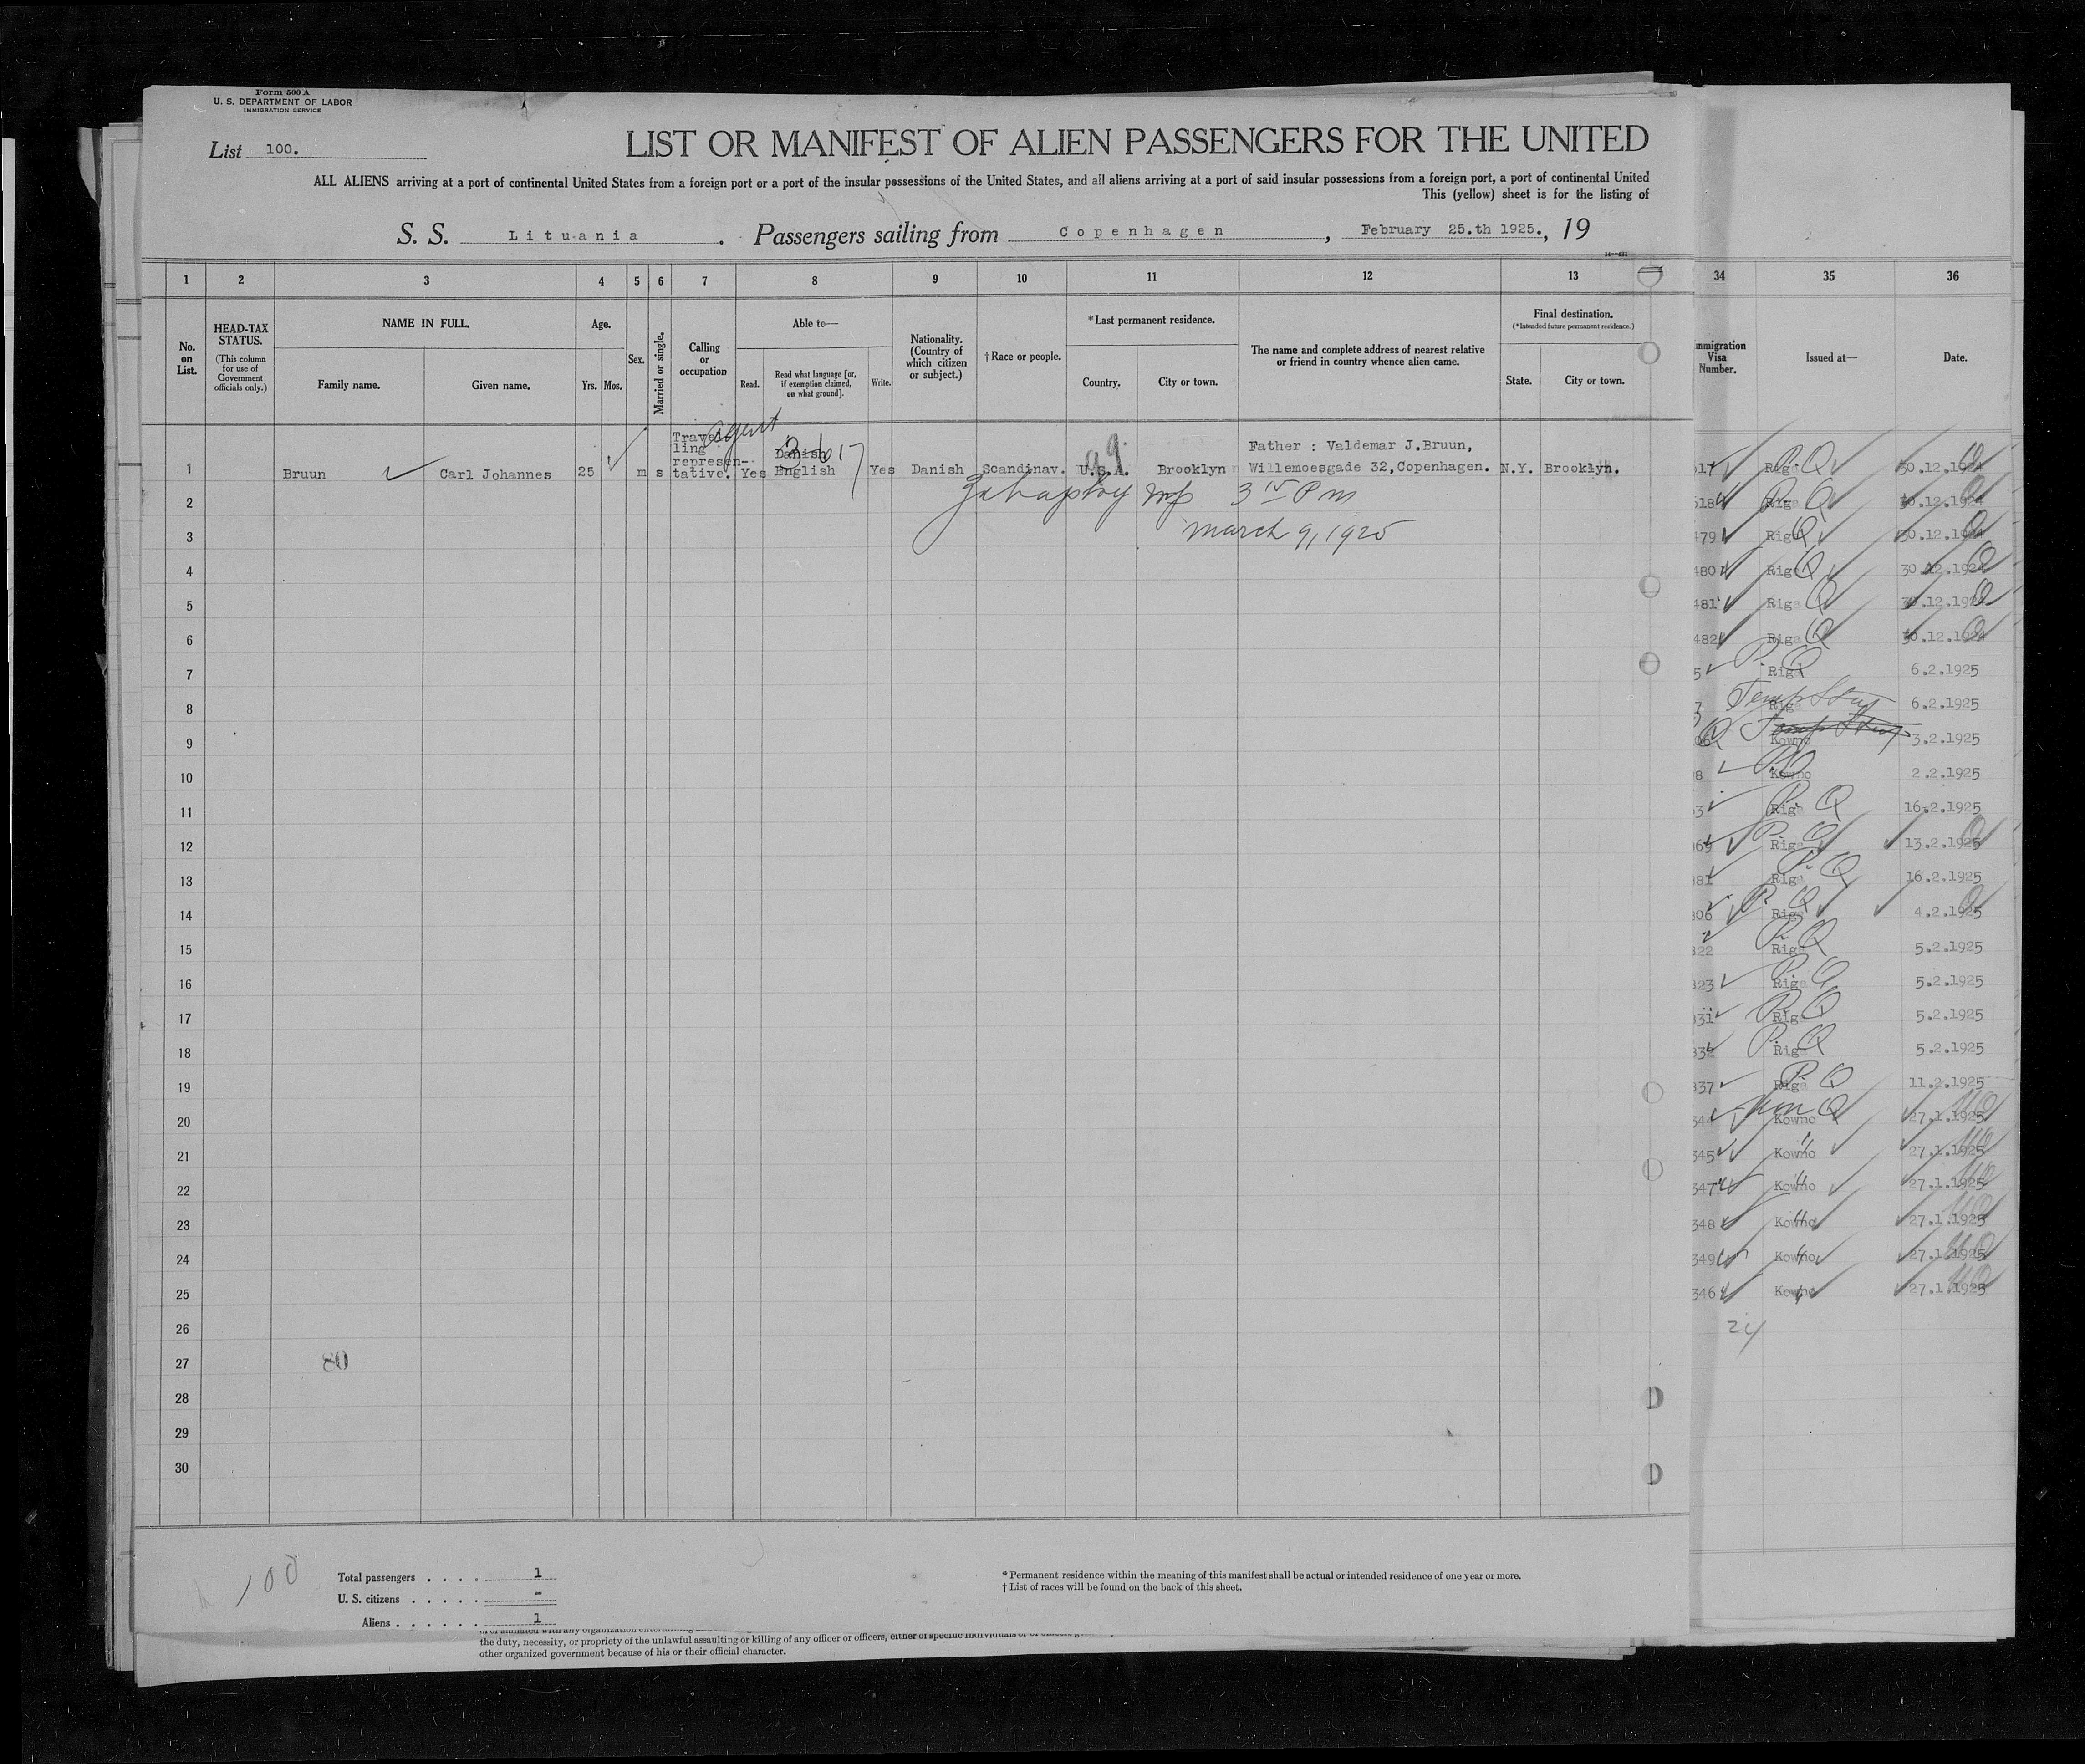 Form 500 A
U. S. DEPARTMENT OF LABOR
IMMIGRATION SERVICE
List 100.
LIST OR MANIFEST OF ALIEN PASSENGERS FOR THE UNITED
ALL ALIENS arriving at a port of continental United States from a foreign port or a port of the insular possessions of the United States, and all aliens arriving at a port of said insular possessions from a foreign port, a port of continental United
This (yellow) sheet is for the listing of
S. S. Lituania. Passengers sailing from Copenhagen, February 25.th 1925., 19
1 2 3 4 5 6 7 8 9 10 11 12 13
No. on List.
HEAD-TAX STATUS.
(This column for use of Government officials only.)
NAME IN FULL.
Family name.
Given name.
Age.
Yrs. Mos.
Sex.
Married or single.
Calling or occupation
Able to—
Read.
Read what language [or, if exemption claimed, on what ground].
Write.
Nationality. (Country of which citizen or subject.)
† Race or people.
*Last permanent residence.
Country.
City or town.
The name and complete address of nearest relative or friend in country whence alien came.
Final destination.
(*Intended future permanent residence.)
State.
City or town.
1 Bruun Carl Johannes 25 m s Travelling representative. agent Yes Danish English Yes Danish Scandinav. U.S.A. Brooklyn Father : Valdemar J.Bruun, Willemoesgade 32,Copenhagen. N.Y. Brooklyn.
2
3 March 9, 1925
4
5
6
7
8
9
10
11
12
13
14
15
16
17
18
19
20
21
22
23
24
25
26
27 80
28
29
30
100
Total passengers . . . . 1
U. S. citizens . . . . . -
Aliens . . . . . . 1
* Permanent residence within the meaning of this manifest shall be actual or intended residence of one year or more.
† List of races will be found on the back of this sheet.
the duty, necessity, or propriety of the unlawful assaulting or killing of any officer or officers, either of specific individuals or
other organized government because of his or their official character.
34 35 36
mmigration Visa Number.
Issued at—
Date.
Riga 30.12.1924
Riga 30.12.1924
Riga 30.12.1924
480 Riga 30.12.1924
481 Riga 30.12.1924
482 Riga 30.12.1924
Riga 6.2.1925
Riga 6.2.1925
Kowno 3.2.1925
Kowno 2.2.1925
Riga 16.2.1925
Riga 13.2.1925
Riga 16.2.1925
Riga 4.2.1925
Riga 5.2.1925
Riga 5.2.1925
Riga 5.2.1925
Riga 5.2.1925
Riga 11.2.1925
Kowno 27.1.1925
345 Kowno 27.1.1925
347 Kowno 27.1.1925
348 Kowno 27.1.1925
349 Kowno 27.1.1925
346 Kowno 27.1.1925
24